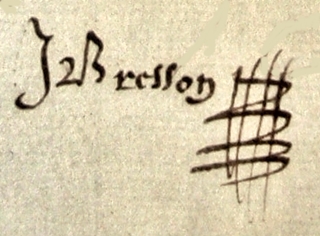 J Bresson